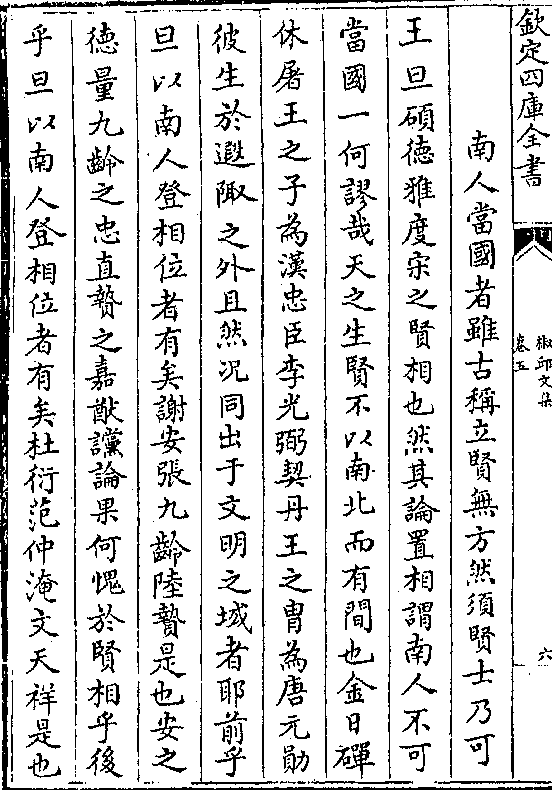 欽定四庫全書
椒邱文集
卷五
六
南人當國者雖古稱立賢無方然須賢士乃可
王旦碩德雅度宋之賢相也然其論置相謂南人不可
當國一何謬哉天之生賢不以南北而有間也金日磾
休屠王之子為漢忠臣李光弼契丹王之胄為唐元勛
彼生於遐陬之外且然況同出于文明之域者耶前乎
旦以南人登相位者有矣謝安張九齡陸贄是也安之
德量九齡之忠直贄之嘉猷讜論果何愧於賢相乎後
乎旦以南人登相位者有矣杜衍范仲淹文天祥是也